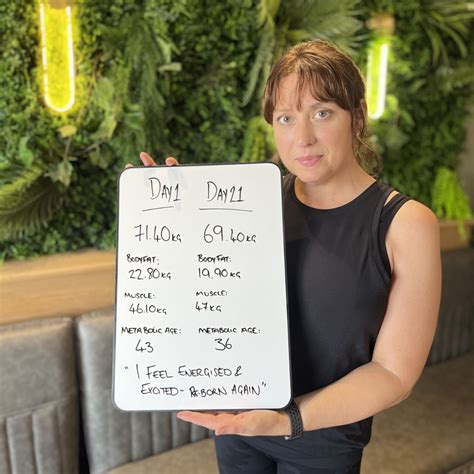 DAY 1 DAY 21
71.40KG 69.40KG
BODYFAT: BODYFAT:
22.80KG 19.90KG
MUSCLE: MUSCLE:
46.10KG 47KG
METABOLIC AGE: METABOLIC AGE:
43 36
"I FEEL ENERGISED &
EXCITED - RE-BORN AGAIN"